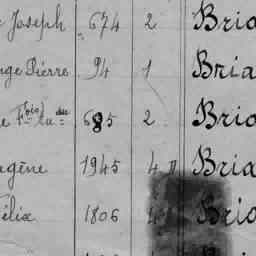 Joseph 674 2 Bria
nge Pierre 94 1 Bria
685 2 Brio
agène 1945 4 Bria
élix 1806 Brio